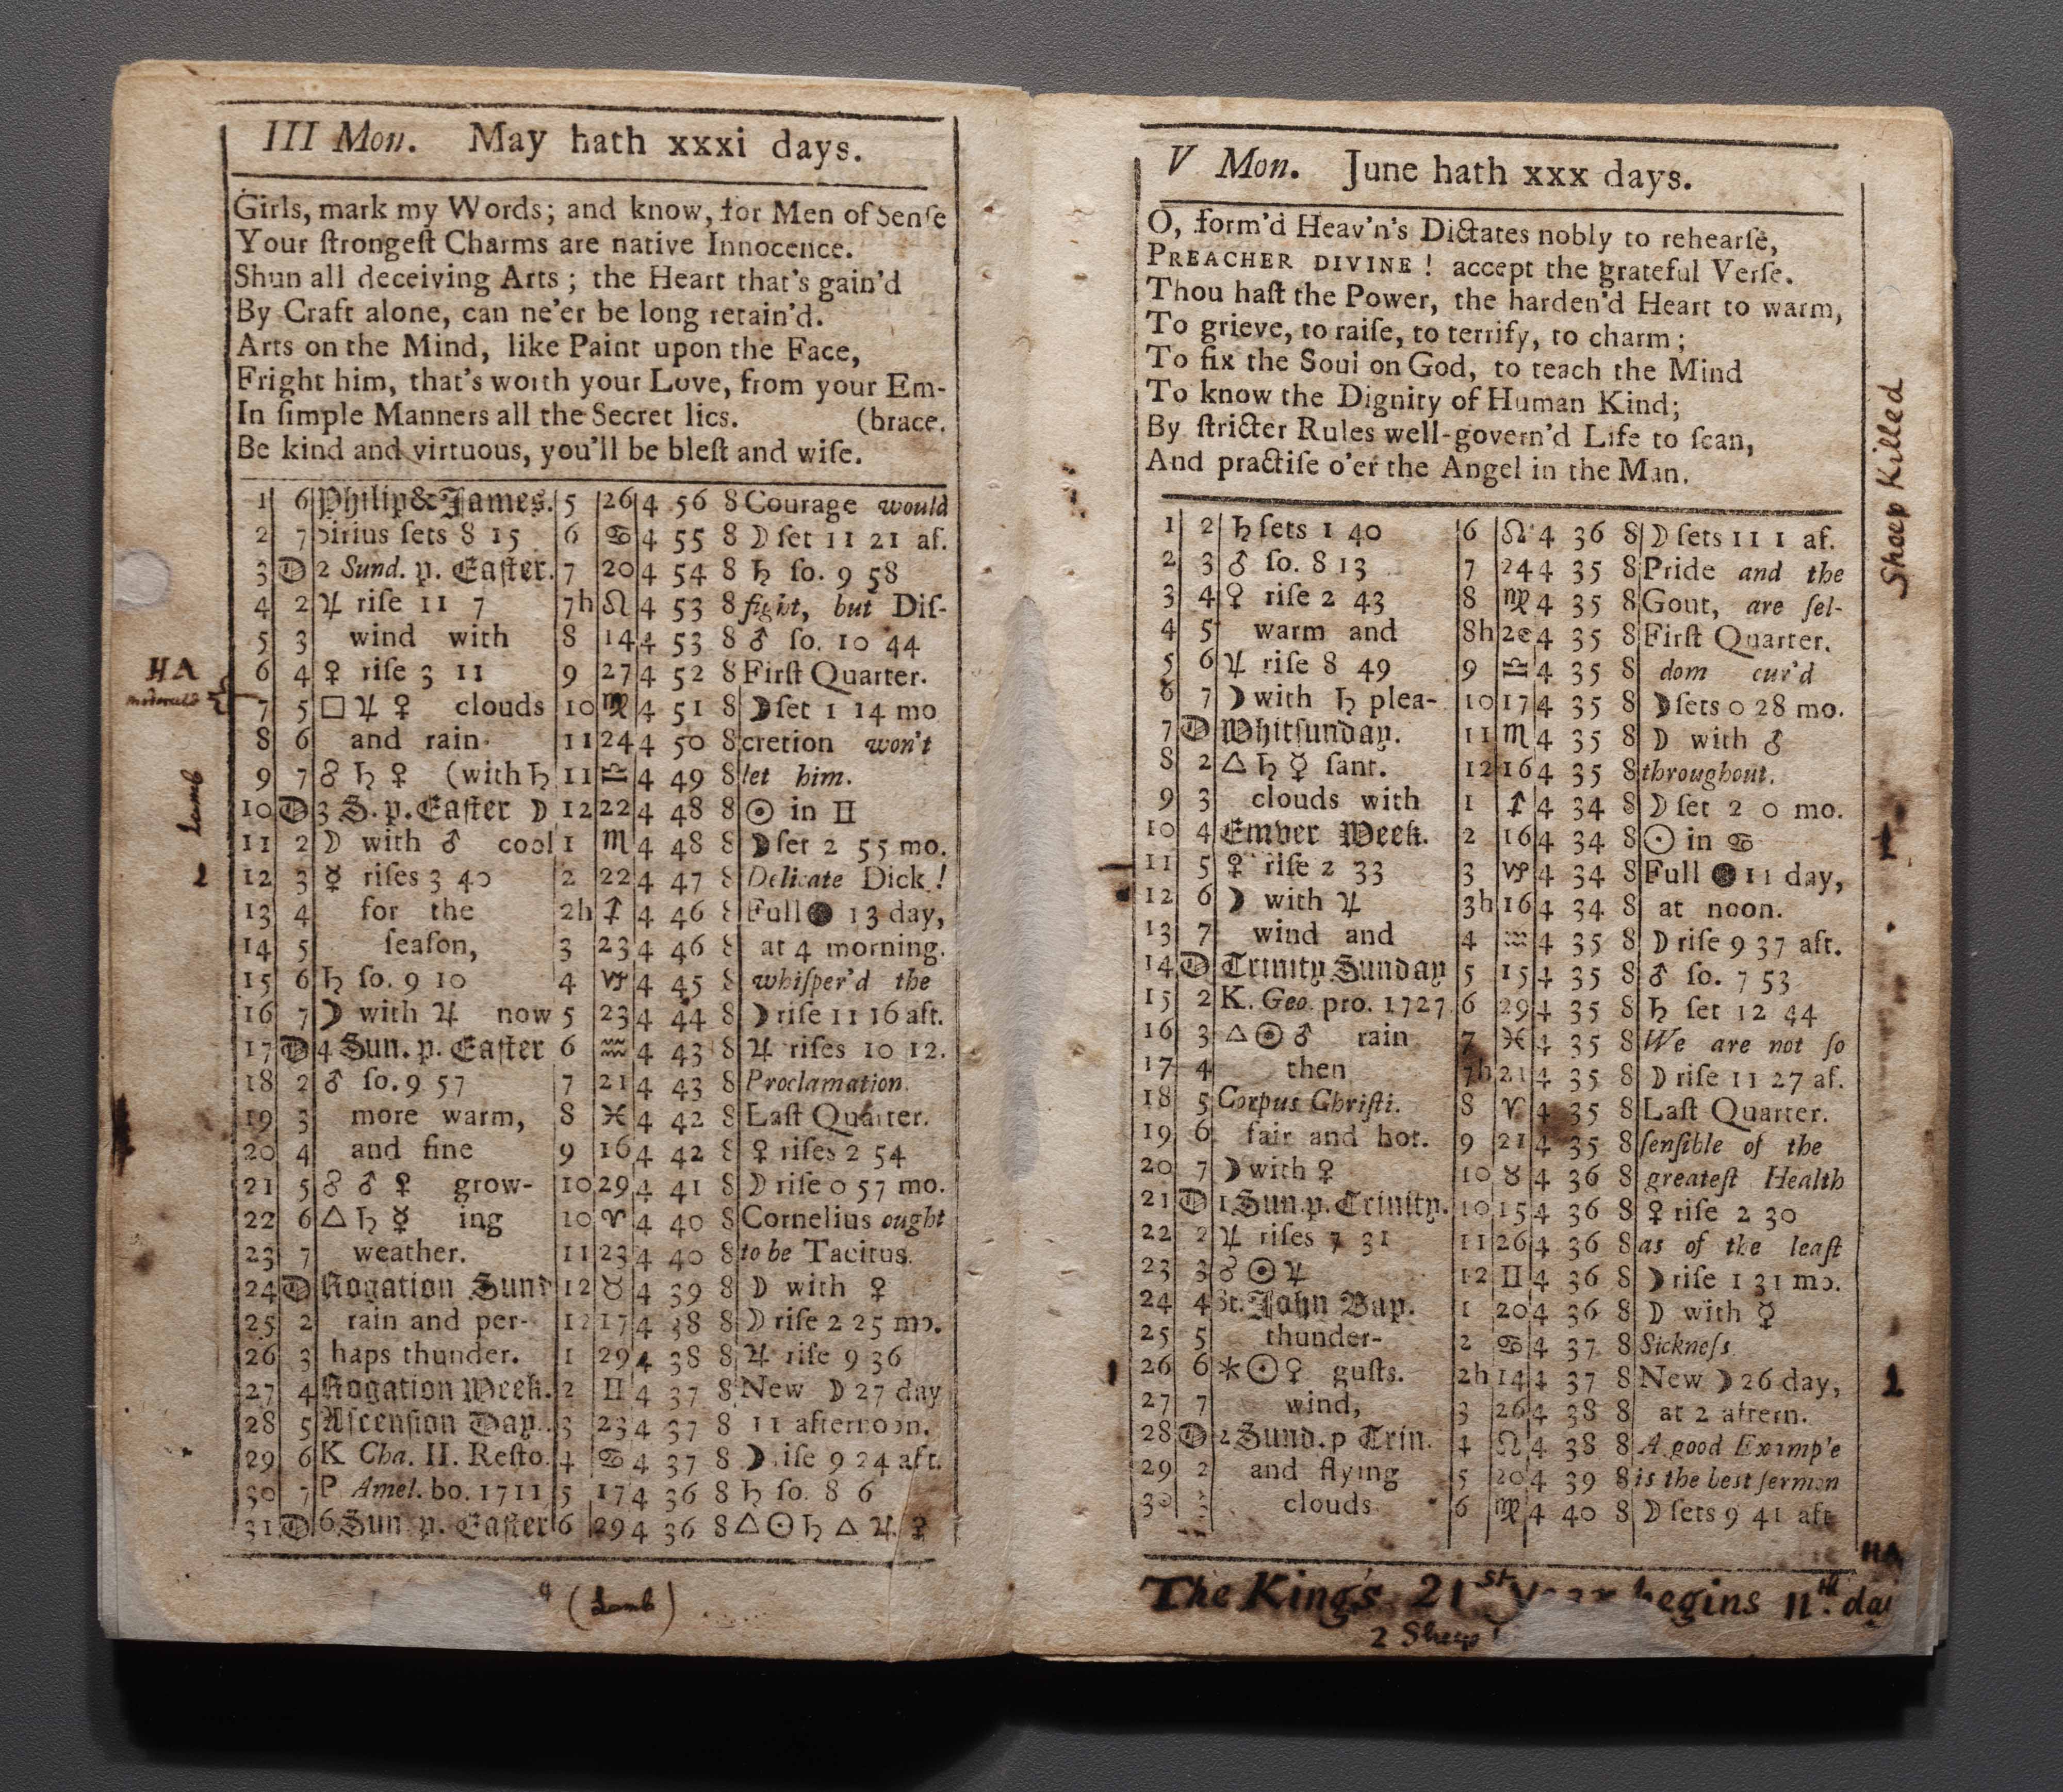 III Mon. May hath xxxi days.
Girls, mark my Words; and know, for Men of Senſe
Your ſtrongeſt Charms are native Innocence.
Shun all deceiving Arts; the Heart that's gain'd
By Craft alone, can ne'er be long retain'd.
Arts on the Mind, like Paint upon the Face,
Fright him, that's worth your Love, from your Em-
In ſimple Manners all the Secret lies. (brace.
Be kind and virtuous, you'll be bleſt and wiſe.
1 6 Philip & James. 5 26 4 56 8 Courage would
2 7 Sirius ſets 8 15 6 ♋ 4 55 8 ☽ ſet 11 21 af.
3 D 2 Sund. p. Eaſter. 7 20 4 54 8 ♄ ſo. 9 58
4 2 ♃ riſe 11 7 7h ♌ 4 53 8 fight, but Diſ-
5 3 wind with 8 14 4 53 8 ♂ ſo. 10 44
6 4 ♀ riſe 3 11 9 27 4 52 8 Firſt Quarter.
7 5 □ ♃ ♀ clouds 10 ♍ 4 51 8 ☽ ſet 1 14 mo
8 6 and rain 11 24 4 50 8 cretion won't
9 7 ☍ ♄ ♀ (with ♄ 11 ♎ 4 49 8 let him.
10 D 3 S. p. Eaſter ☽ 12 22 4 48 8 ☉ in ♊
11 2 ☽ with ♂ cool 1 ♏ 4 48 8 ☽ ſet 2 55 mo.
12 3 ☿ riſes 3 40 2 22 4 47 8 Delicate Dick!
13 4 for the 2h ♐ 4 46 8 Full ● 13 day,
14 5 ſeaſon, 3 23 4 46 8 at 4 morning.
15 6 ♄ ſo. 9 10 4 ♑ 4 45 8 whiſper'd the
16 7 ☽ with ♃ now 5 23 4 44 8 ☽ riſe 11 16 aft.
17 D 4 Sun. p. Eaſter 6 ♒ 4 43 8 ♃ riſes 10 12.
18 2 ♂ ſo. 9 57 7 21 4 43 8 Proclamation.
19 3 more warm, 8 ♓ 4 42 8 Laſt Quarter.
20 4 and fine 9 16 4 42 8 ♀ riſes 2 54
21 5 ☍ ♂ ♀ grow- 10 29 4 41 8 ☽ riſe 0 57 mo.
22 6 △ ♄ ☿ ing 10 ♈ 4 40 8 Cornelius ought
23 7 weather. 11 23 4 40 8 to be Tacitus.
24 D Rogation Sund 12 ♉ 4 39 8 ☽ with ♀
25 2 rain and per- 12 17 4 38 8 ☽ riſe 2 25 mo.
26 3 haps thunder. 1 29 4 38 8 ♃ riſe 9 36
27 4 Rogation Week. 2 ♊ 4 37 8 New ☽ 27 day
28 5 Aſcenſion Day. 3 23 4 37 8 11 afternoon.
29 6 K Cha. II. Reſto. 4 ♋ 4 37 8 ☽ riſe 9 24 aft.
30 7 P Amel. bo. 1711 5 17 4 36 8 ♄ ſo. 8 6
31 D 6 Sun. p. Eaſter 6 29 4 36 8 △ ☉ ♄ △ ♃ ♀
HA
Lamb
1
(Lamb)
V Mon. June hath xxx days.
O, form'd Heav'n's Dictates nobly to rehearſe,
PREACHER DIVINE! accept the grateful Verſe.
Thou haſt the Power, the harden'd Heart to warm,
To grieve, to raiſe, to terrify, to charm;
To fix the Soul on God, to teach the Mind
To know the Dignity of Human Kind;
By ſtricter Rules well-govern'd Life to ſcan,
And practiſe o'er the Angel in the Man.
1 2 ♄ ſets 1 40 6 ♌ 4 36 8 ☽ ſets 11 1 af.
2 3 ♂ ſo. 8 13 7 24 4 35 8 Pride and the
3 4 ♀ riſe 2 43 8 ♍ 4 35 8 Gout, are ſel-
4 5 warm and 8h 20 4 35 8 Firſt Quarter.
5 6 ♃ riſe 8 49 9 ♎ 4 35 8 dom cur'd
6 7 ☽ with ♄ plea- 10 17 4 35 8 ☽ ſets 0 28 mo.
7 D Whitſunday. 11 ♏ 4 35 8 ☽ with ♂
8 2 △ ♄ ☿ ſant. 12 16 4 35 8 throughout.
9 3 clouds with 1 ♐ 4 34 8 ☽ ſet 2 0 mo.
10 4 Ember Week. 2 16 4 34 8 ☉ in ♋
11 5 ♀ riſe 2 33 3 ♑ 4 34 8 Full ● 11 day,
12 6 ☽ with ♃ 3h 16 4 34 8 at noon.
13 7 wind and 4 ♒ 4 35 8 ☽ riſe 9 37 aft.
14 D Trinity Sunday 5 15 4 35 8 ♂ ſo. 7 53
15 2 K. Geo. pro. 1727 6 29 4 35 8 ♄ ſet 12 44
16 3 △ ☉ ♂ rain 7 ♓ 4 35 8 We are not ſo
17 4 then 7h 21 4 35 8 ☽ riſe 11 27 af.
18 5 Corpus Chriſti. 8 ♈ 4 35 8 Laſt Quarter.
19 6 fair and hot. 9 21 4 35 8 ſenſible of the
20 7 ☽ with ♀ 10 ♉ 4 36 8 greateſt Health
21 D 1 Sun. p. Trinity. 10 15 4 36 8 ♀ riſe 2 30
22 2 ♃ riſes 7 31 11 26 4 36 8 as of the leaſt
23 3 ☍ ☉ ♃ 12 ♊ 4 36 8 ☽ riſe 1 31 mo.
24 4 St. John Bap. 1 20 4 36 8 ☽ with ☿
25 5 thunder- 2 ♋ 4 37 8 Sickneſs.
26 6 ✶ ☉ ♀ guſts. 2h 14 4 37 8 New ☽ 26 day,
27 7 wind, 3 26 4 38 8 at 2 aftern.
28 D 2 Sund. p Trin. 4 ♌ 4 38 8 A good Example
29 2 and flying 5 20 4 39 8 is the beſt ſermon
30 3 clouds 6 ♍ 4 40 8 ☽ ſets 9 41 aft
Sheep Killed
1
1
HA
The King's 21st Year begins 11th. day
2 Sheep